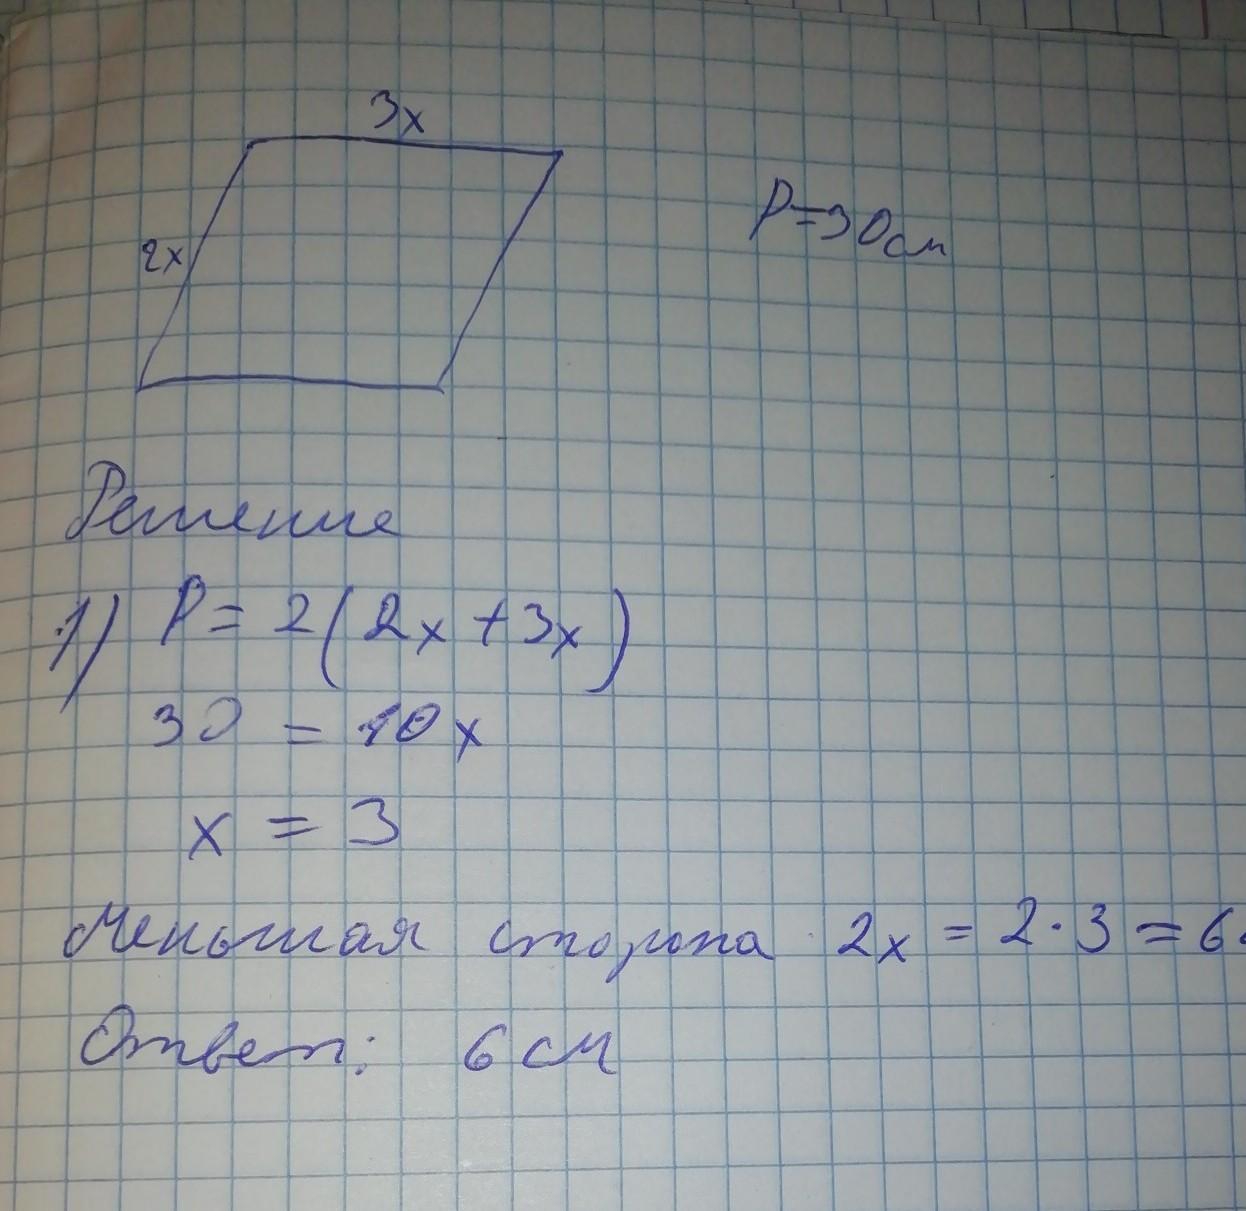 3x
2x
P=30см
Решение
1) P = 2(2x + 3x)
30 = 10x
x = 3
Меньшая сторона 2x = 2·3 = 6
Ответ: 6 см